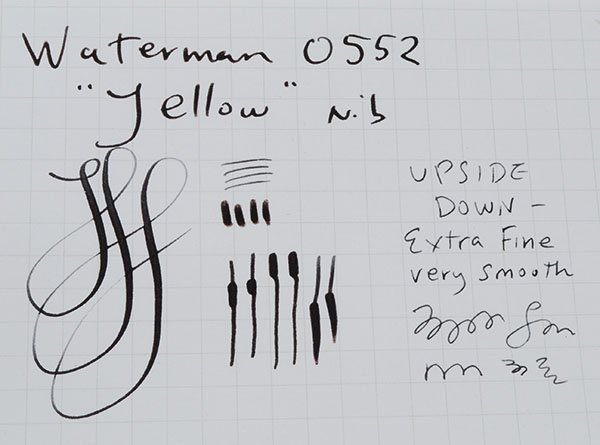 Waterman 0552
"Yellow" Nib
UPSIDE
DOWN -
Extra Fine
very smooth